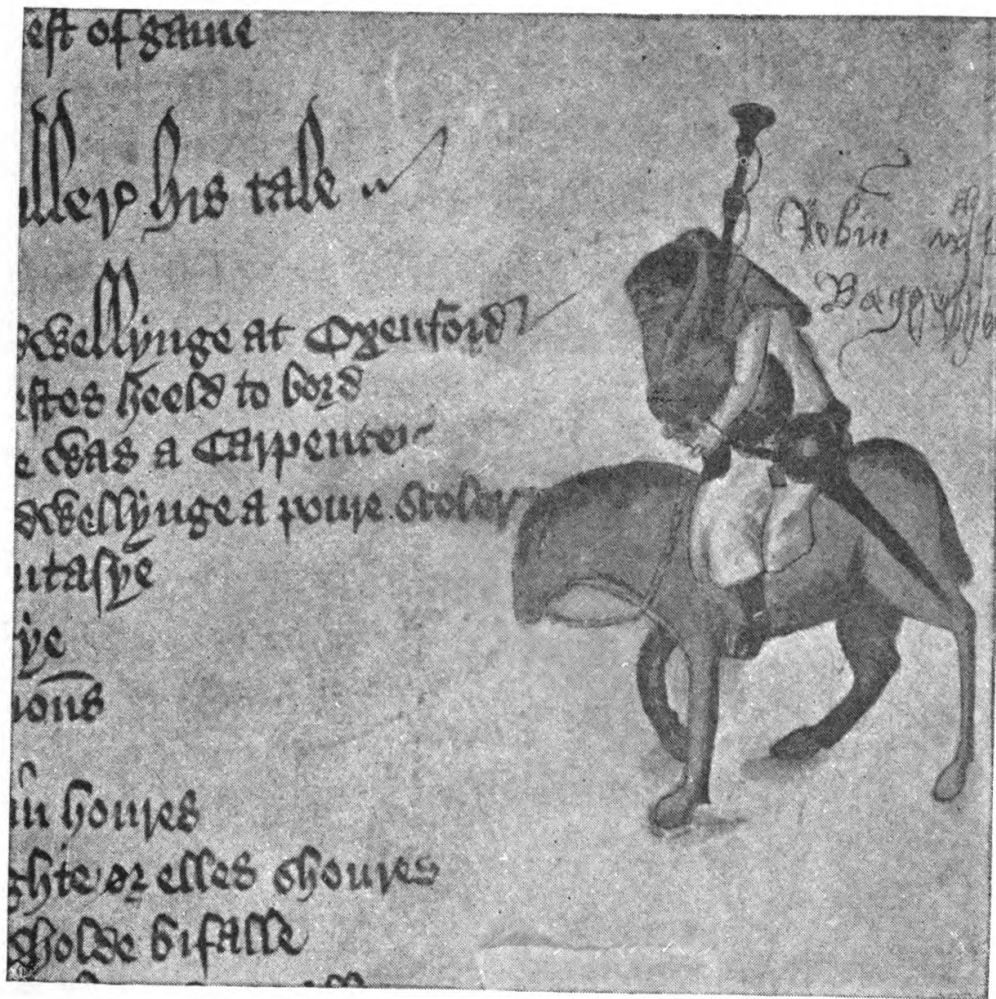 eft of game
ller his tale
dwellynge at Oxenford
estes heeld to bord
e was a Carpenter
dwellynge a poure Scoler
ntasye
ye
ions
in houres
ghte or elles shoures
sholde bifalle
Robin with
Bagpype